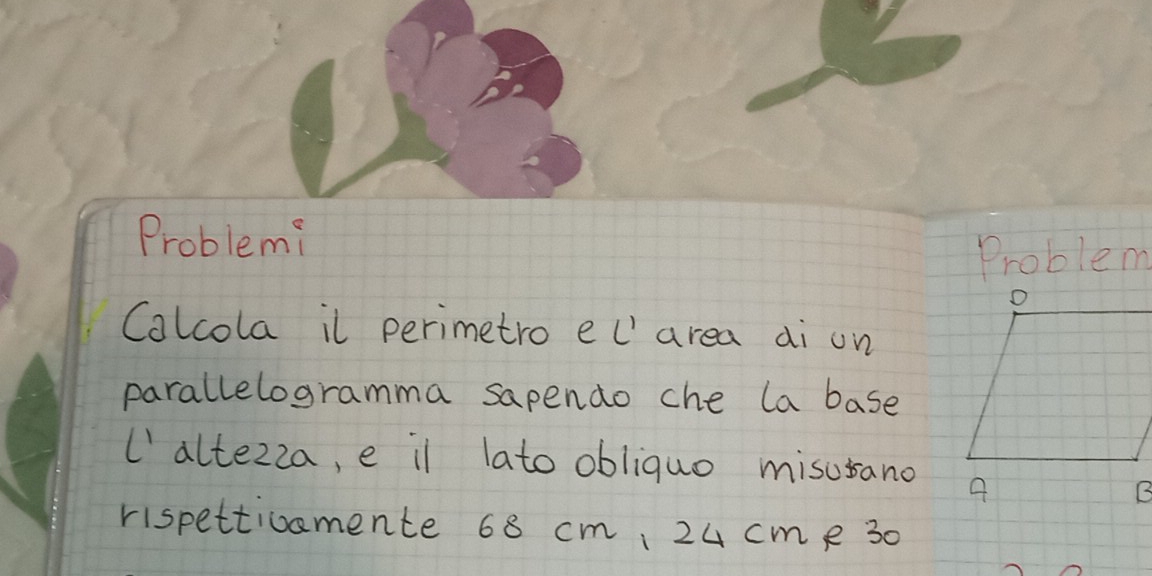 Problemi
Calcola il perimetro e l'area di un
parallelogramma sapendo che la base
l'altezza, e il lato obliquo misurano
rispettivamente 68 cm, 24 cm e 30
Problem
D
A
B